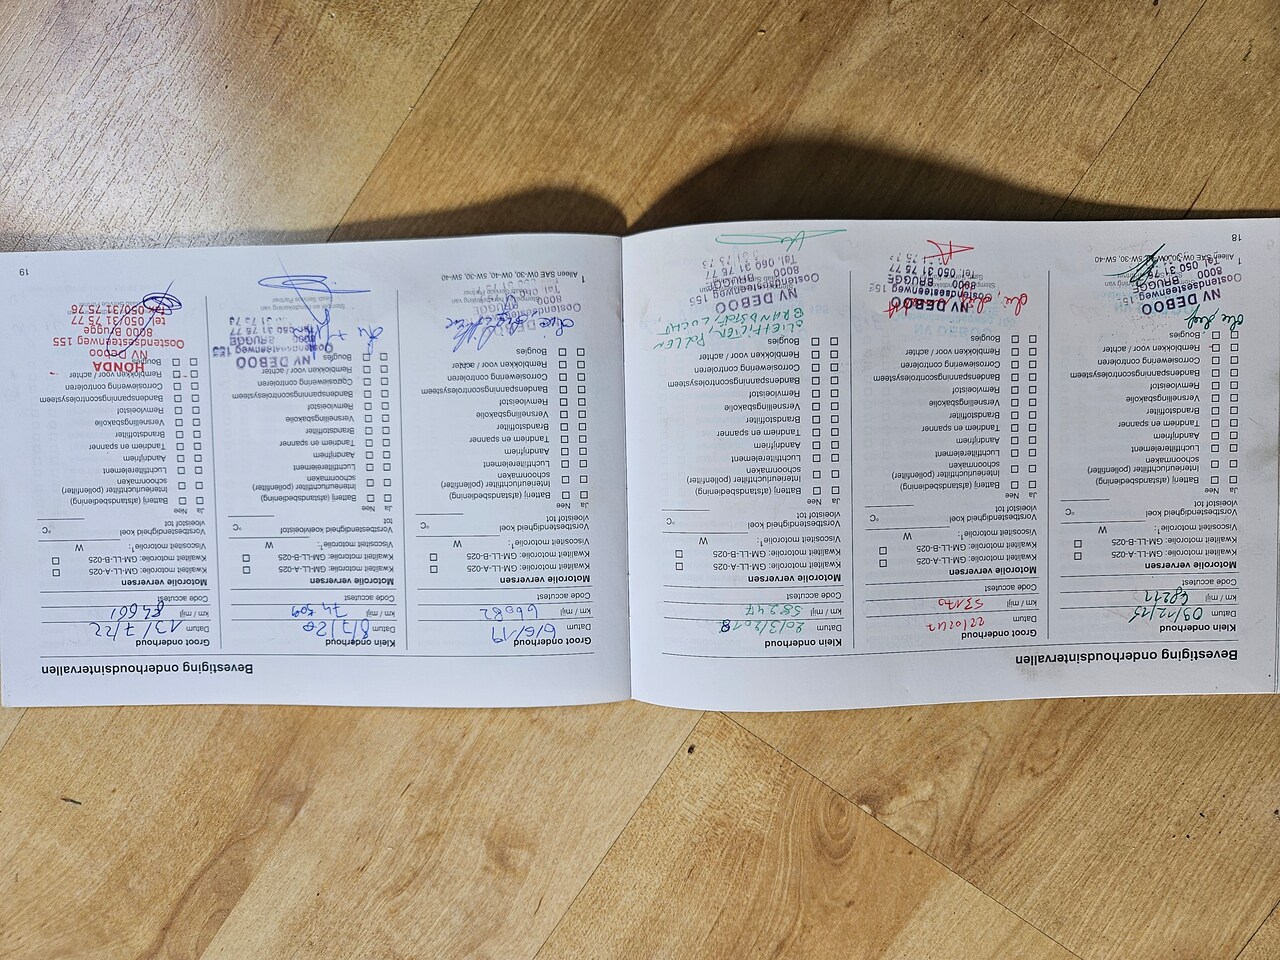 Bevestiging onderhoudsintervallen
Klein onderhoud
Datum 09/12/15
km / mijl
Code accutest
Motorolie verversen
Kwaliteit motorolie: GM-LL-A-025
Kwaliteit motorolie: GM-LL-B-025
Viscositeit motorolie¹: W
Vorstbestendigheid koel
vloeistof tot °C
Ja Nee
Batterij (afstandsbediening)
Interieurluchtfilter (pollenfilter)
schoonmaken
Luchtfilterelement
Aandrijfriem
Tandriem en spanner
Brandstoffilter
Versnellingsbakolie
Remvloeistof
Bandenspanningscontrolesysteem
Corrosiewering controleren
Remblokken voor / achter
Bougies
NV DEBOO
Oostendsesteenweg 155
8000 BRUGGE
Tel. 050 31 75 77
1 Alleen SAE 0W-30, 0W-40, 5W-30, 5W-40
18
Groot onderhoud
Datum
km / mijl 53170
Code accutest
Motorolie verversen
Kwaliteit motorolie: GM-LL-A-025
Kwaliteit motorolie: GM-LL-B-025
Viscositeit motorolie¹: W
Vorstbestendigheid koel
vloeistof tot °C
Ja Nee
Batterij (afstandsbediening)
Interieurluchtfilter (pollenfilter)
schoonmaken
Luchtfilterelement
Aandrijfriem
Tandriem en spanner
Brandstoffilter
Versnellingsbakolie
Remvloeistof
Bandenspanningscontrolesysteem
Corrosiewering controleren
Remblokken voor / achter
Bougies
NV DEBOO
Oostendsesteenweg 155
8000 BRUGGE
Tel. 050 31 75 77
Klein onderhoud
Datum 20/3/2018
km / mijl 58247
Code accutest
Motorolie verversen
Kwaliteit motorolie: GM-LL-A-025
Kwaliteit motorolie: GM-LL-B-025
Viscositeit motorolie¹: W
Vorstbestendigheid koel
vloeistof tot °C
Ja Nee
Batterij (afstandsbediening)
Interieurluchtfilter (pollenfilter)
schoonmaken
Luchtfilterelement
Aandrijfriem
Tandriem en spanner
Brandstoffilter
Versnellingsbakolie
Remvloeistof
Bandenspanningscontrolesysteem
Corrosiewering controleren
Remblokken voor / achter
Bougies
POLLEN
BRANDSTOF LUCHT
NV DEBOO
Oostendsesteenweg 155
8000 BRUGGE
Tel. 050 31 75 77
Bevestiging onderhoudsintervallen
Groot onderhoud
Datum 6/6/19
km / mijl 66082
Code accutest
Motorolie verversen
Kwaliteit motorolie: GM-LL-A-025
Kwaliteit motorolie: GM-LL-B-025
Viscositeit motorolie¹: W
Vorstbestendigheid koel
vloeistof tot °C
Ja Nee
Batterij (afstandsbediening)
Interieurluchtfilter (pollenfilter)
schoonmaken
Luchtfilterelement
Aandrijfriem
Tandriem en spanner
Brandstoffilter
Versnellingsbakolie
Remvloeistof
Bandenspanningscontrolesysteem
Corrosiewering controleren
Remblokken voor / achter
Bougies
1 Alleen SAE 0W-30, 0W-40, 5W-30, 5W-40
Klein onderhoud
Datum 8/7/20
km / mijl 74509
Code accutest
Motorolie verversen
Kwaliteit motorolie: GM-LL-A-025
Kwaliteit motorolie: GM-LL-B-025
Viscositeit motorolie¹: W
Vorstbestendigheid koelvloeistof
tot °C
Ja Nee
Batterij (afstandsbediening)
Interieurluchtfilter (pollenfilter)
schoonmaken
Luchtfilterelement
Aandrijfriem
Tandriem en spanner
Brandstoffilter
Versnellingsbakolie
Remvloeistof
Bandenspanningscontrolesysteem
Corrosiewering controleren
Remblokken voor / achter
Bougies
NV DEBOO
Oostendsesteenweg 155
Groot onderhoud
Datum 13/7/22
km / mijl 84661
Code accutest
Motorolie verversen
Kwaliteit motorolie: GM-LL-A-025
Kwaliteit motorolie: GM-LL-B-025
Viscositeit motorolie¹: W
Vorstbestendigheid koel
vloeistof tot °C
Ja Nee
Batterij (afstandsbediening)
Interieurluchtfilter (pollenfilter)
schoonmaken
Luchtfilterelement
Aandrijfriem
Tandriem en spanner
Brandstoffilter
Versnellingsbakolie
Remvloeistof
Bandenspanningscontrolesysteem
Corrosiewering controleren
Remblokken voor / achter
Bougies
HONDA
NV Deboo
Oostendsesteenweg 155
8000 Brugge
tel. 050/31 75 77
19